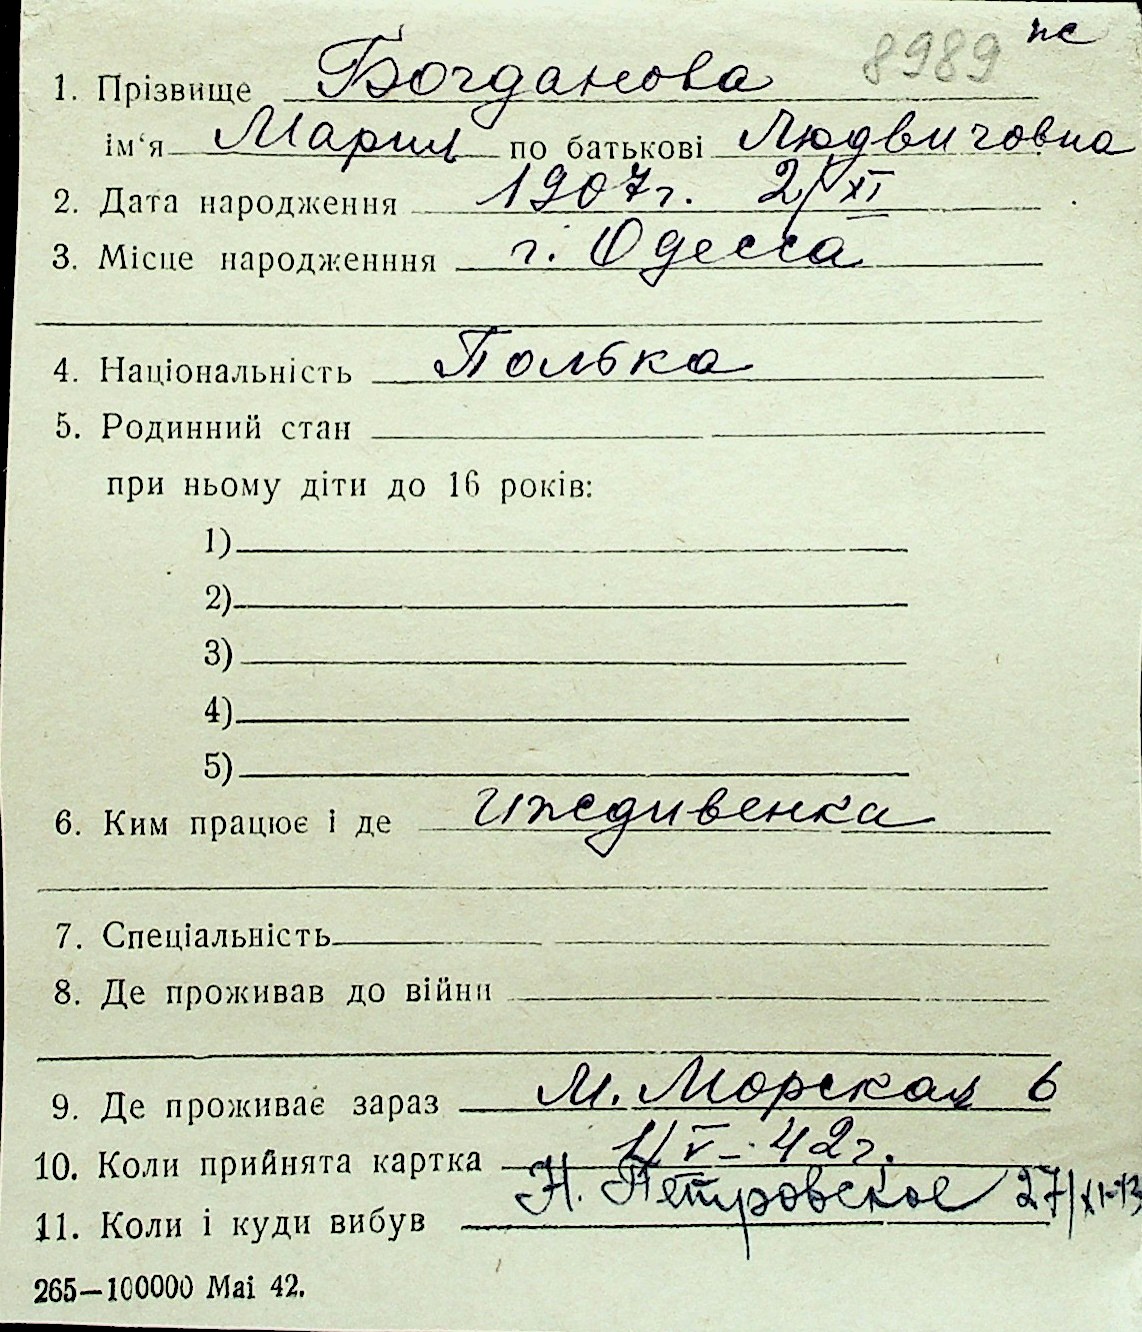 8989 пс
1. Прізвище Богданова
ім‘я Мария по батькові Людвиговна
2. Дата народження 1907г. 2/XI
3. Місце народженння г. Одесса
4. Національність Полька
5. Родинний стан
при ньому діти до 16 років:
1)
2)
3)
4)
5)
6. Ким працює і де иждивенка
7. Спеціальність
8. Де проживав до війни
9. Де проживає зараз М. Морская 6
10. Коли прийнята картка 1/V-42г.
11. Коли і куди вибув Н. Петровское 27/XI-43
265—100000 Mai 42.